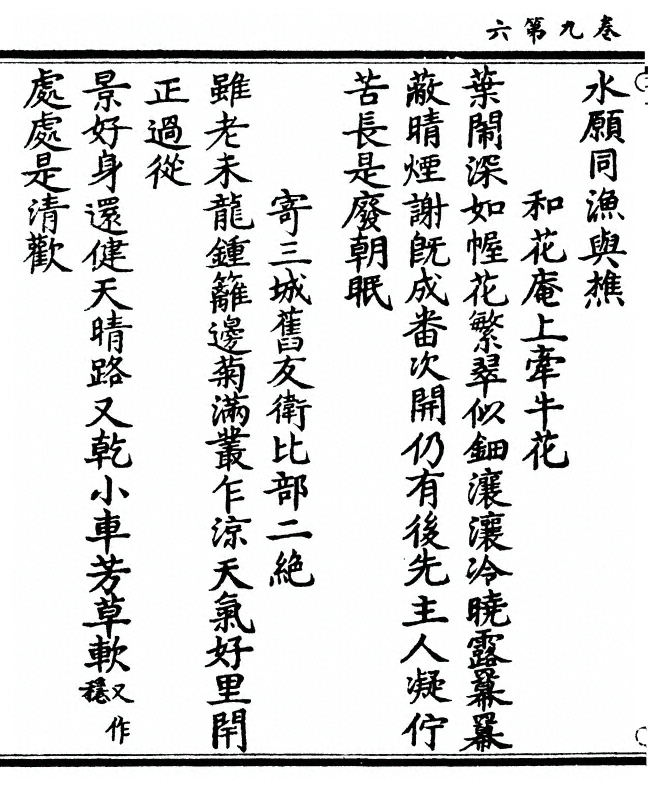 卷九第六
水願同漁與樵
和花庵上牽牛花
葉鬧深如幄花繁翠似鈿瀼瀼冷曉露羃羃
蔽晴煙謝既成畨次開仍有後先主人凝佇
苦長是廢朝眠
寄三城舊友衛比部二絶
雖老未龍鍾籬邊菊滿叢乍涼天氣好里閈
正過從
景好身還健天晴路又乾小車芳草軟又作穩
處處是清歡